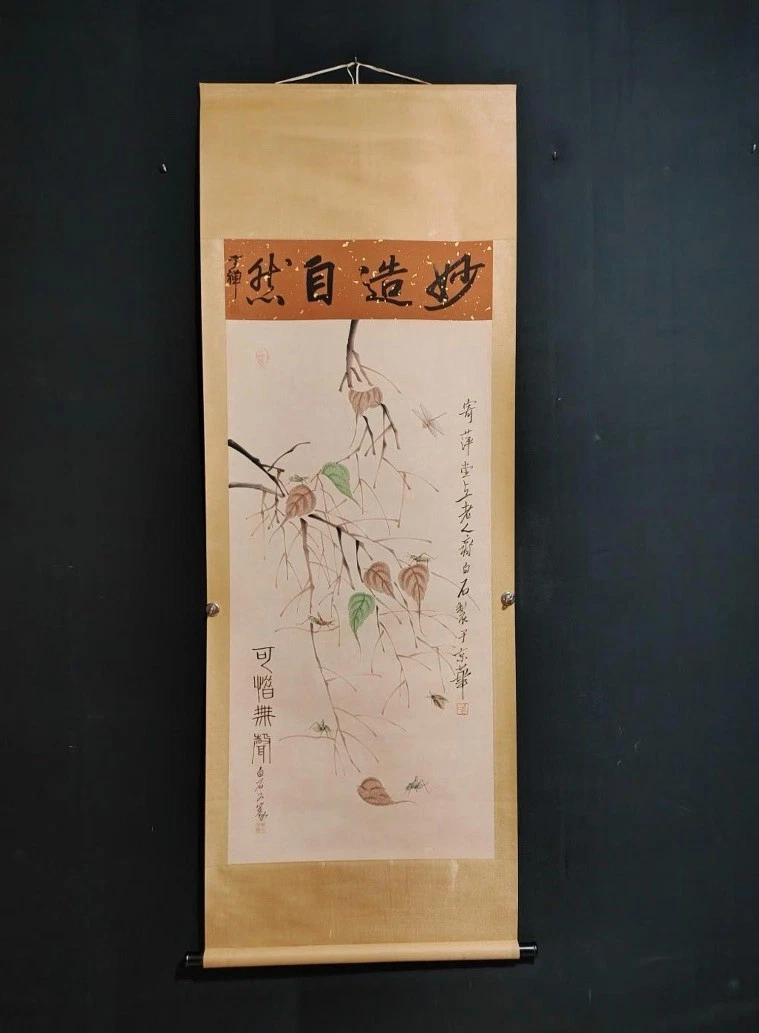 妙造自然
子禪
寄萍堂上老人齊白石製于京華
可惜無聲
白石又篆